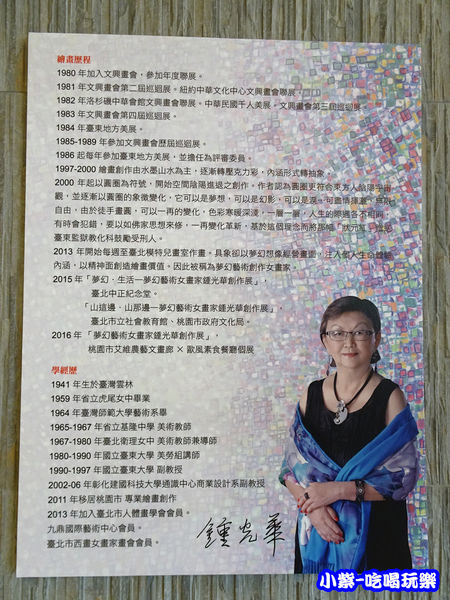 繪畫歷程
1980 年加入文興畫會，參加年度聯展。
1981 年文興畫會第二屆巡迴展。紐約中華文化中心文興畫會聯展。
1982 年洛杉磯中華會館文興畫會聯展。中華民國千人美展。文興畫會第三屆巡迴展。
1983 年文興畫會第四屆巡迴展。
1984 年臺東地方美展。
1985-1989 年參加文興畫會歷屆巡迴展。
1986 起每年參加臺東地方美展，並擔任為評審委員。
1997-2000 繪畫創作由水墨山水為主，逐漸轉壓克力彩，內涵形式轉抽象。
2000 年起以圓圈為符號，開始空間陰陽進退之創作。作者認為圓圈更符合東方人陰陽宇宙
觀，並逐漸以圓圈的象徵變化，它可以是夢想，可以是幻影，可以是淚，可盡情揮灑，無限
自由，由於徒手畫圓，可以一再的變化，色彩寒暖深淺，一層一層，人生的際遇各不相同，
有時會犯錯，要以如佛家思想來修，一再變化革新，基於這個理念而將那幅「狀元
臺東監獄教化科鼓勵受刑人。
2013 年開始每週至臺北模特兒畫室作畫。具象卻以夢幻想像經營畫面，注入個人生命體驗
內涵，以精神面創造繪畫價值。因此被稱為夢幻藝術創作女畫家。
2015 年「夢幻．生活一夢幻藝術女畫家鍾光華創作展」，
臺北中正紀念堂。
「山這邊、山那邊一夢幻藝術女畫家鍾光華創作展」，
臺北市立社會教育館、桃園市政府文化局。
2016 年「夢幻藝術女畫家鍾光華創作展」，
桃園市艾維農藝文畫廊 × 歐風素食餐廳個展
學經歷
1941 年生於臺灣雲林
1959 年省立虎尾女中畢業
1964 年臺灣師範大學藝術系畢
1965-1967 年省立基隆中學 美術教師
1967-1980 年臺北衛理女中 美術教師兼導師
1980-1990 年國立臺東大學 美勞組講師
1990-1997 年國立臺東大學 副教授
2002-06 年彰化建國科技大學通識中心商業設計系副教授
2011 年移居桃園市 專業繪畫創作
2013 年加入臺北市人體畫學會會員。
九鼎國際藝術中心會員。
臺北市西畫女畫家畫會會員。
鍾光華
小紫-吃喝玩樂